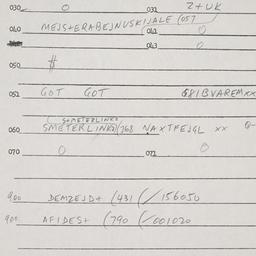 030 0 032 Z+UK
040 MEJS+ERABEJNUSKIJALE (057
042 0
043 0
050 #
052 GOT GOT 681BVAREMXX
SOMETERLINKS
060 SMETERLINKS(768 NAXTFEJGL XX
070 0 072 0
900 DEMZEJD+ (431 (/156050
900 AFIDES+ (790 (/001020